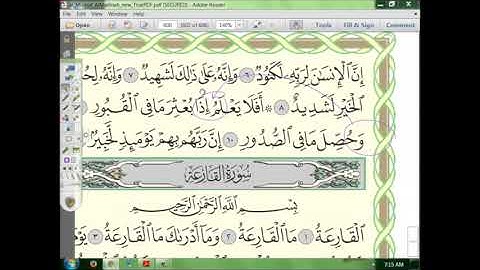 Mushaf_AlMadinah_new_TruePDF.pdf (SECURED) - Adobe Reader
Open
600
140%
Tools
Fill & Sign
Comment
إِنَّ ٱلْإِنسَٰنَ لِرَبِّهِۦ لَكَنُودٌ ٦ وَإِنَّهُۥ عَلَىٰ ذَٰلِكَ لَشَهِيدٌ ٧ وَإِنَّهُۥ
ٱلْخَيْرِ لَشَدِيدٌ ٨ ۞ أَفَلَا يَعْلَمُ إِذَا بُعْثِرَ مَا فِى ٱلْقُبُورِ
وَحُصِّلَ مَا فِى ٱلصُّدُورِ ١٠ إِنَّ رَبَّهُم بِهِمْ يَوْمَئِذٍ لَّخَبِيرٌۢ
سُورَةُ القَارِعَةِ
بِسْمِ ٱللَّهِ ٱلرَّحْمَٰنِ ٱلرَّحِيمِ
ٱلْقَارِعَةُ ١ مَا ٱلْقَارِعَةُ ٢ وَمَآ أَدْرَىٰكَ مَا ٱلْقَارِعَةُ ٣
7:15 AM